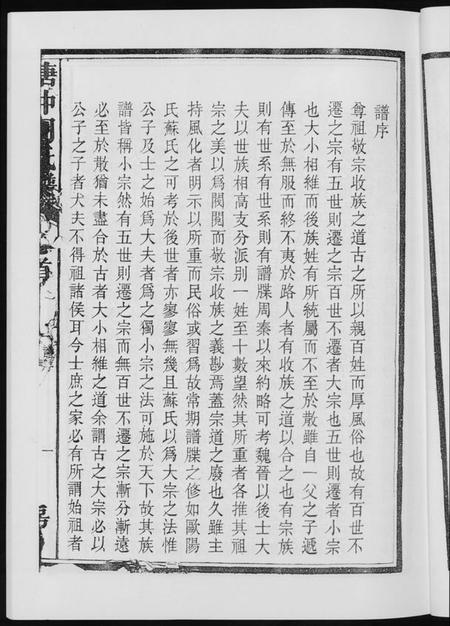 譜序
尊祖敬宗收族之道古之所以親百姓而厚風俗也故有百世不
遷之宗有五世則遷之宗百世不遷者大宗也五世則遷者小宗
也大小相維而後族姓有所統屬而不至於散雖自一父之子遞
傳至於無服而終不夷於路人者有收族之道以合之也有宗族
則有世系有世系則有譜牒周秦以來約略可考魏晉以後士大
夫以世族相高支分派別一姓至十數望然其所重者各推其祖
宗之美以爲閥閱而敬宗收族之義尠焉蓋宗道之廢也久雖主
持風化者明示以所重而民俗或習爲故常期譜牒之修如歐陽
氏蘇氏之可考於後世者亦寥寥無幾且蘇氏以爲大宗之法惟
公子及士之始爲大夫者爲之獨小宗之法可施於天下故其族
譜皆稱小宗然有五世則遷之宗而無百世不遷之宗漸分漸遠
必至於散猶未盡合於古者大小相維之道余謂古之大宗必以
公子之子者犬夫不得祖諸侯耳今士庶之家必有所謂始祖者
一